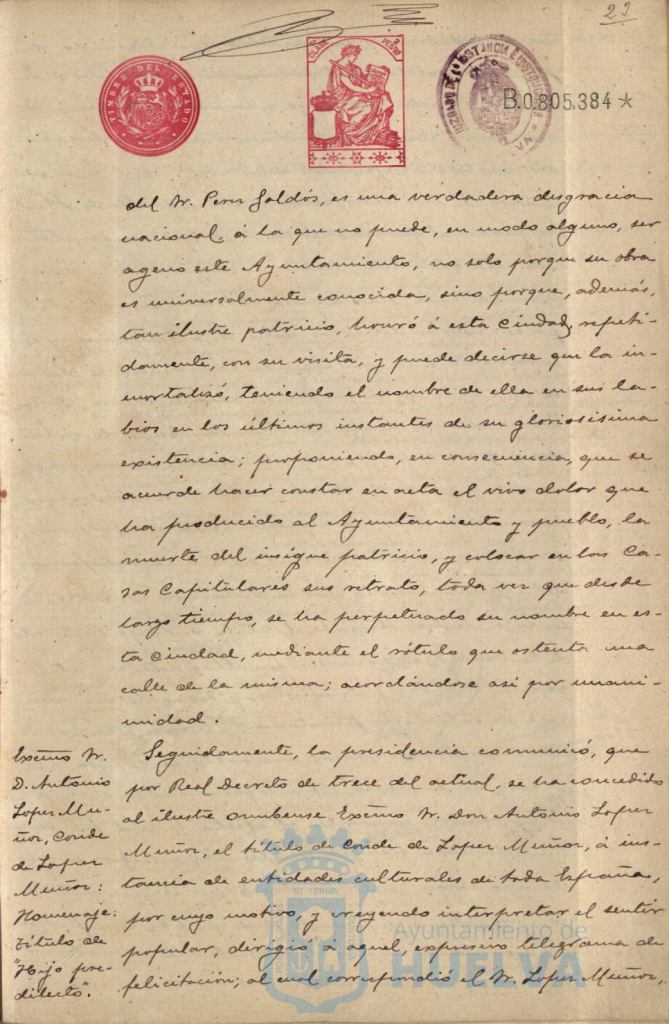 29
TIMBRE DEL ESTADO
CLASE
B.0.805.384 *
del Sr. Perez Galdós, es una verdadera disgracia
nacional, á la que no puede, en modo alguno, ser
ageno este Ayuntamiento, no solo porque su obra
es universalmente conocida, sino porque, además,
tan ilustre patricio, honró á esta Ciudad, repeti-
damente, con su visita, y puede decirse que la in-
mortalizó, teniendo el nombre de ella en sus la-
bios en los últimos instantes de su gloriosisima
existencia; proponiendo, en consecuencia, que se
acuerde hacer constar en acta el vivo dolor que
ha producido al Ayuntamiento y pueblo, la
muerte del insigne patricio, y colocar en las Ca-
sas Capitulares sus retrato, toda vez que desde
largo tiempo, se ha perpetuado su nombre en es-
ta Ciudad, mediante el rótulo que ostenta una
calle de la misma; acordándose asi por unani-
midad.
Excmo Sr.
D. Antonio
Lopez Mu-
ñoz, Conde
de Lopez
Muñoz:
Homenaje:
título de
"Hijo pre-
dilecto".
Seguidamente, la presidencia comunicó, que
por Real Decreto de trece del actual, se ha concedido
al ilustre Onubense Excmo Sr. Don Antonio Lopez
Muñoz, el título de Conde de Lopez Muñoz, á ins-
tancia de entidades culturales de toda España,
por cuyo motivo, y creyendo interpretar el sentir
popular, dirigió á aquel, expresivo telegrama de
felicitación; al cual correspondió el Sr. Lopez Muñoz,
Ayuntamiento de
HUELVA